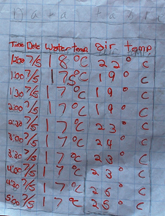 Time Date Water temp air temp
7/5 18 °C 22 ° C
1:00 7/5 17.5 °C 19 ° C
1:30 7/5 17 °C 19 ° C
2:00 7/5 17 °C 19 ° C
7/5 17 °C 23 ° C
3:00 7/5 17 °C 24 ° C
3:30 7/5 17 °C 23 ° C
4:00 7/5 17 °C 23 ° C
4:30 7/5 17 °C 26 ° C
5:00 7/5 17 °C 25 ° C